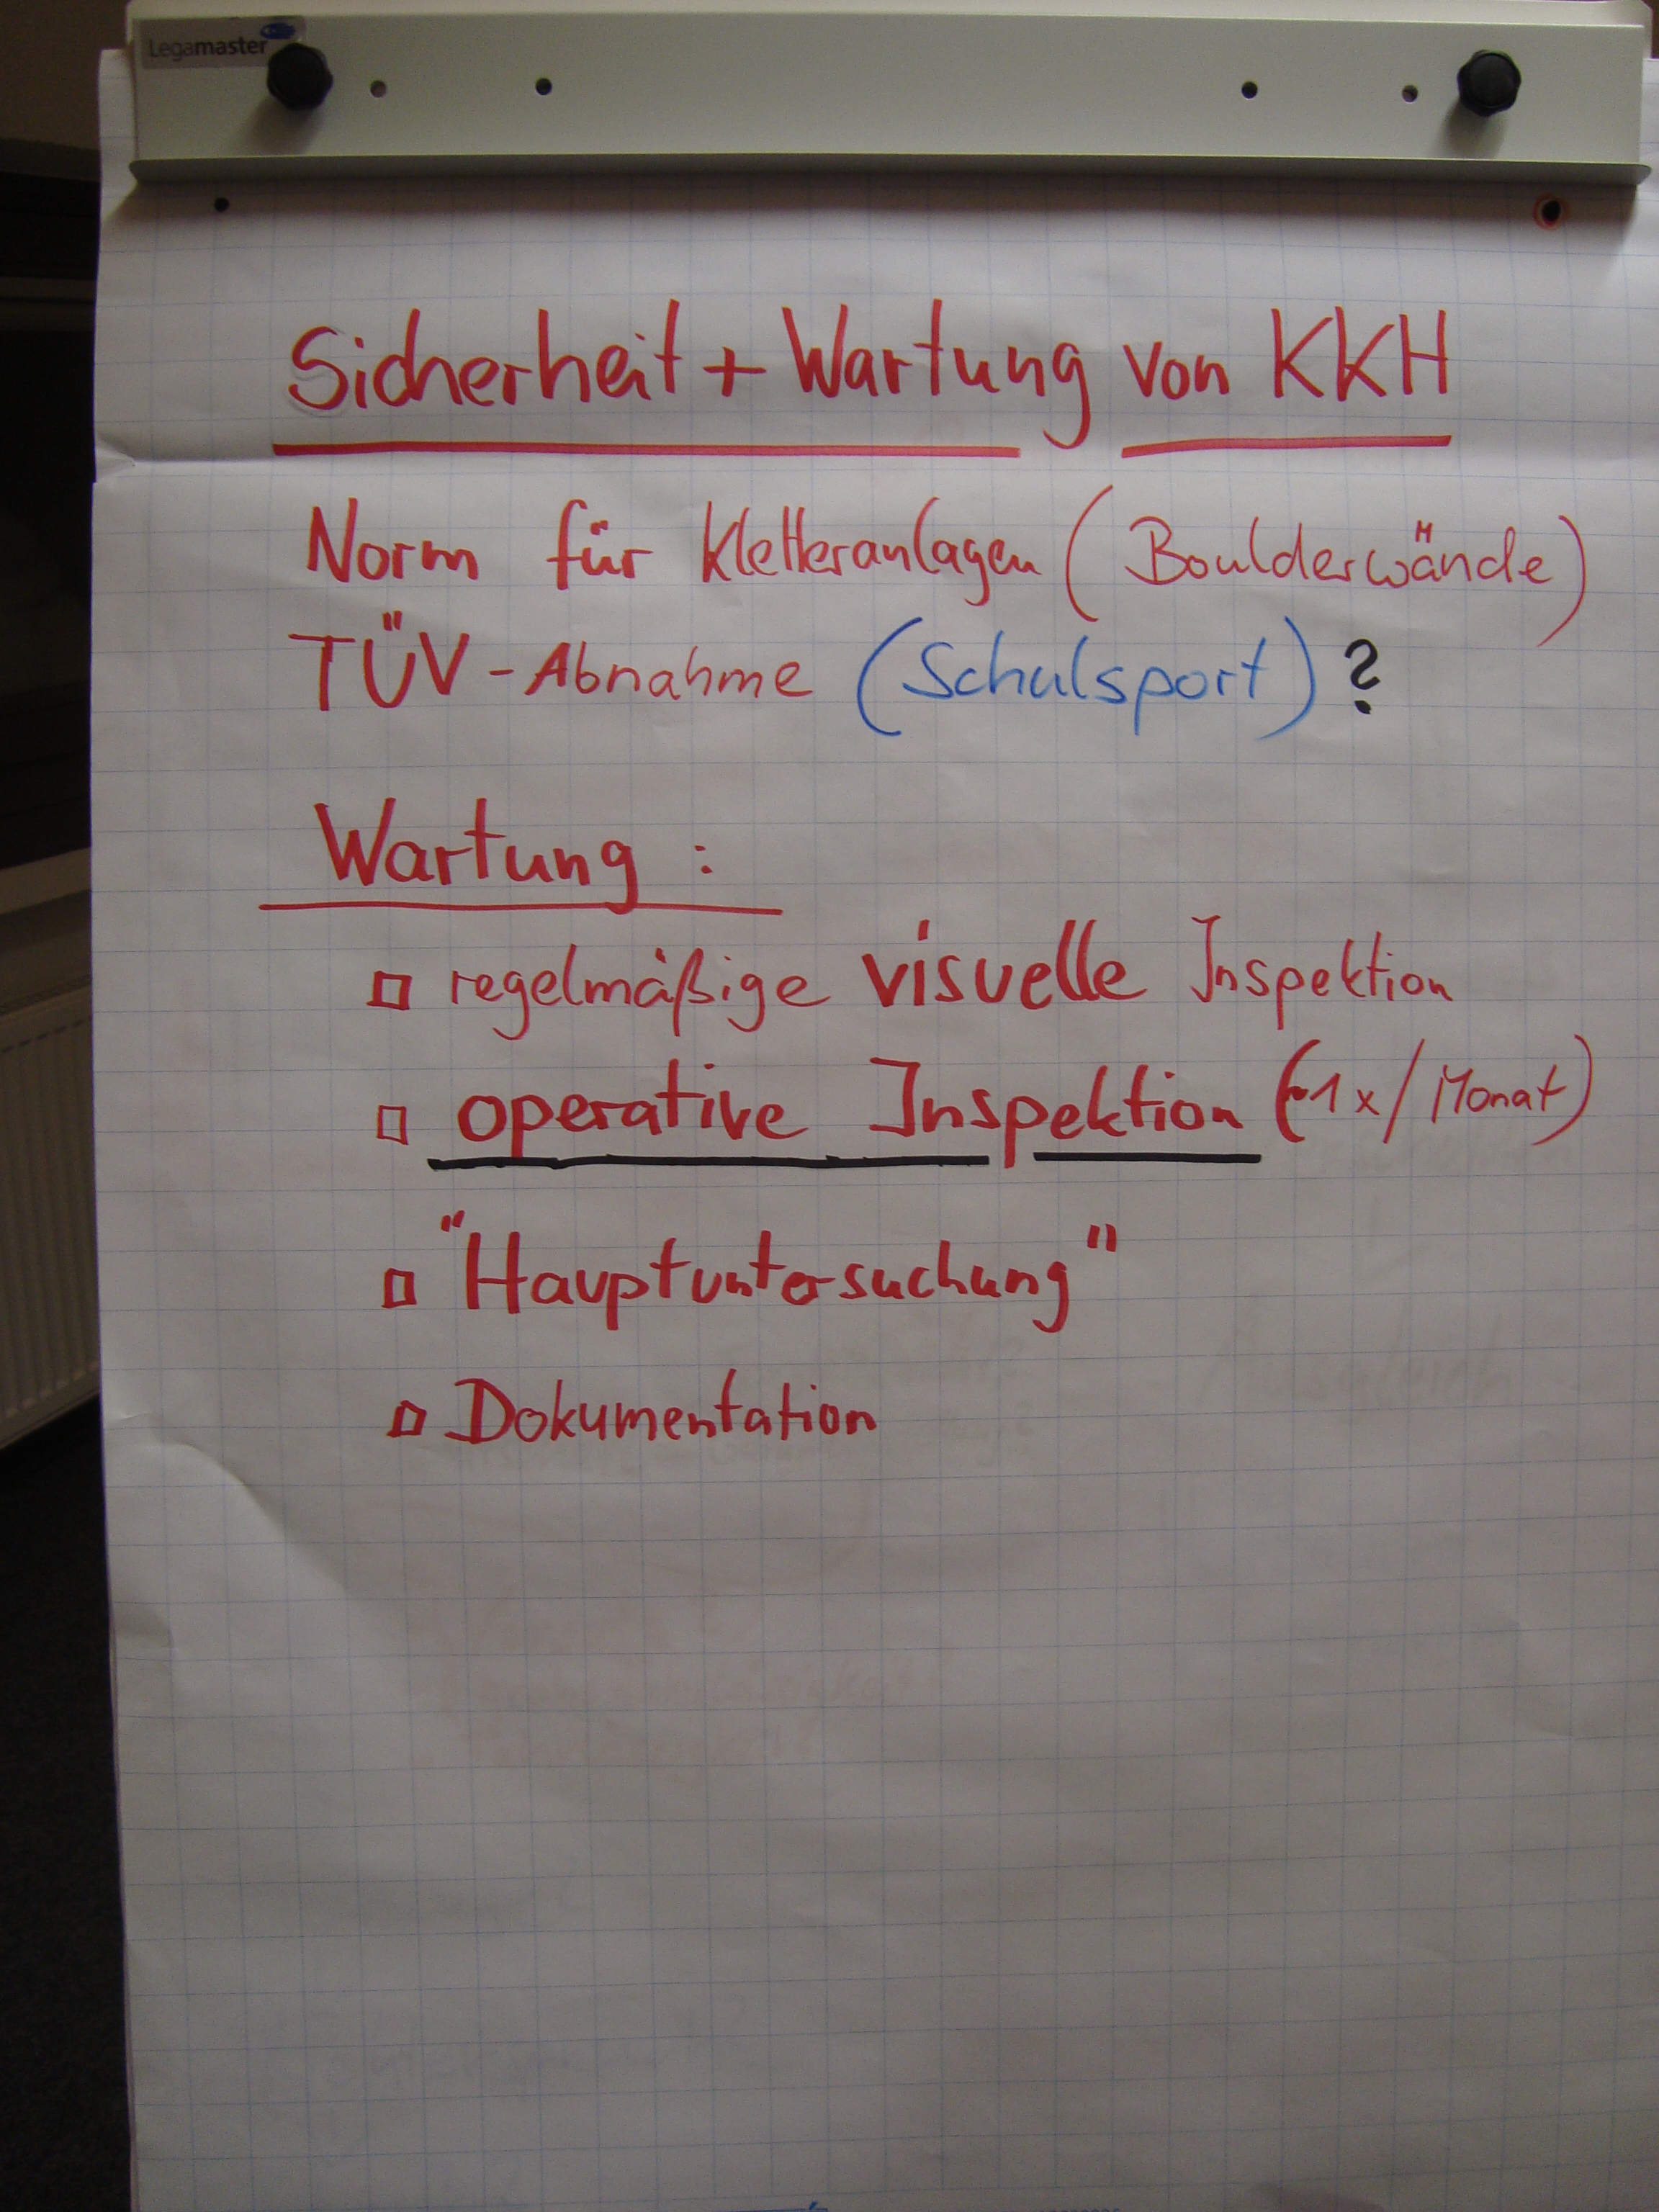 Legamaster
Sicherheit + Wartung von KKH
Norm für Kletteranlagen (Boulderwände)
TÜV-Abnahme (Schulsport) ?
Wartung :
□ regelmäßige visuelle Inspektion
□ operative Inspektion (1x/Monat)
□ "Hauptuntersuchung"
□ Dokumentation